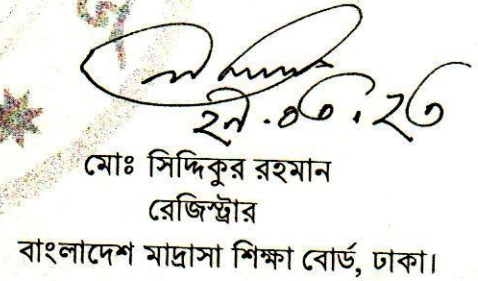 মোঃ সিদ্দিকুর রহমান
রেজিস্ট্রার
বাংলাদেশ মাদ্রাসা শিক্ষা বোর্ড, ঢাকা।